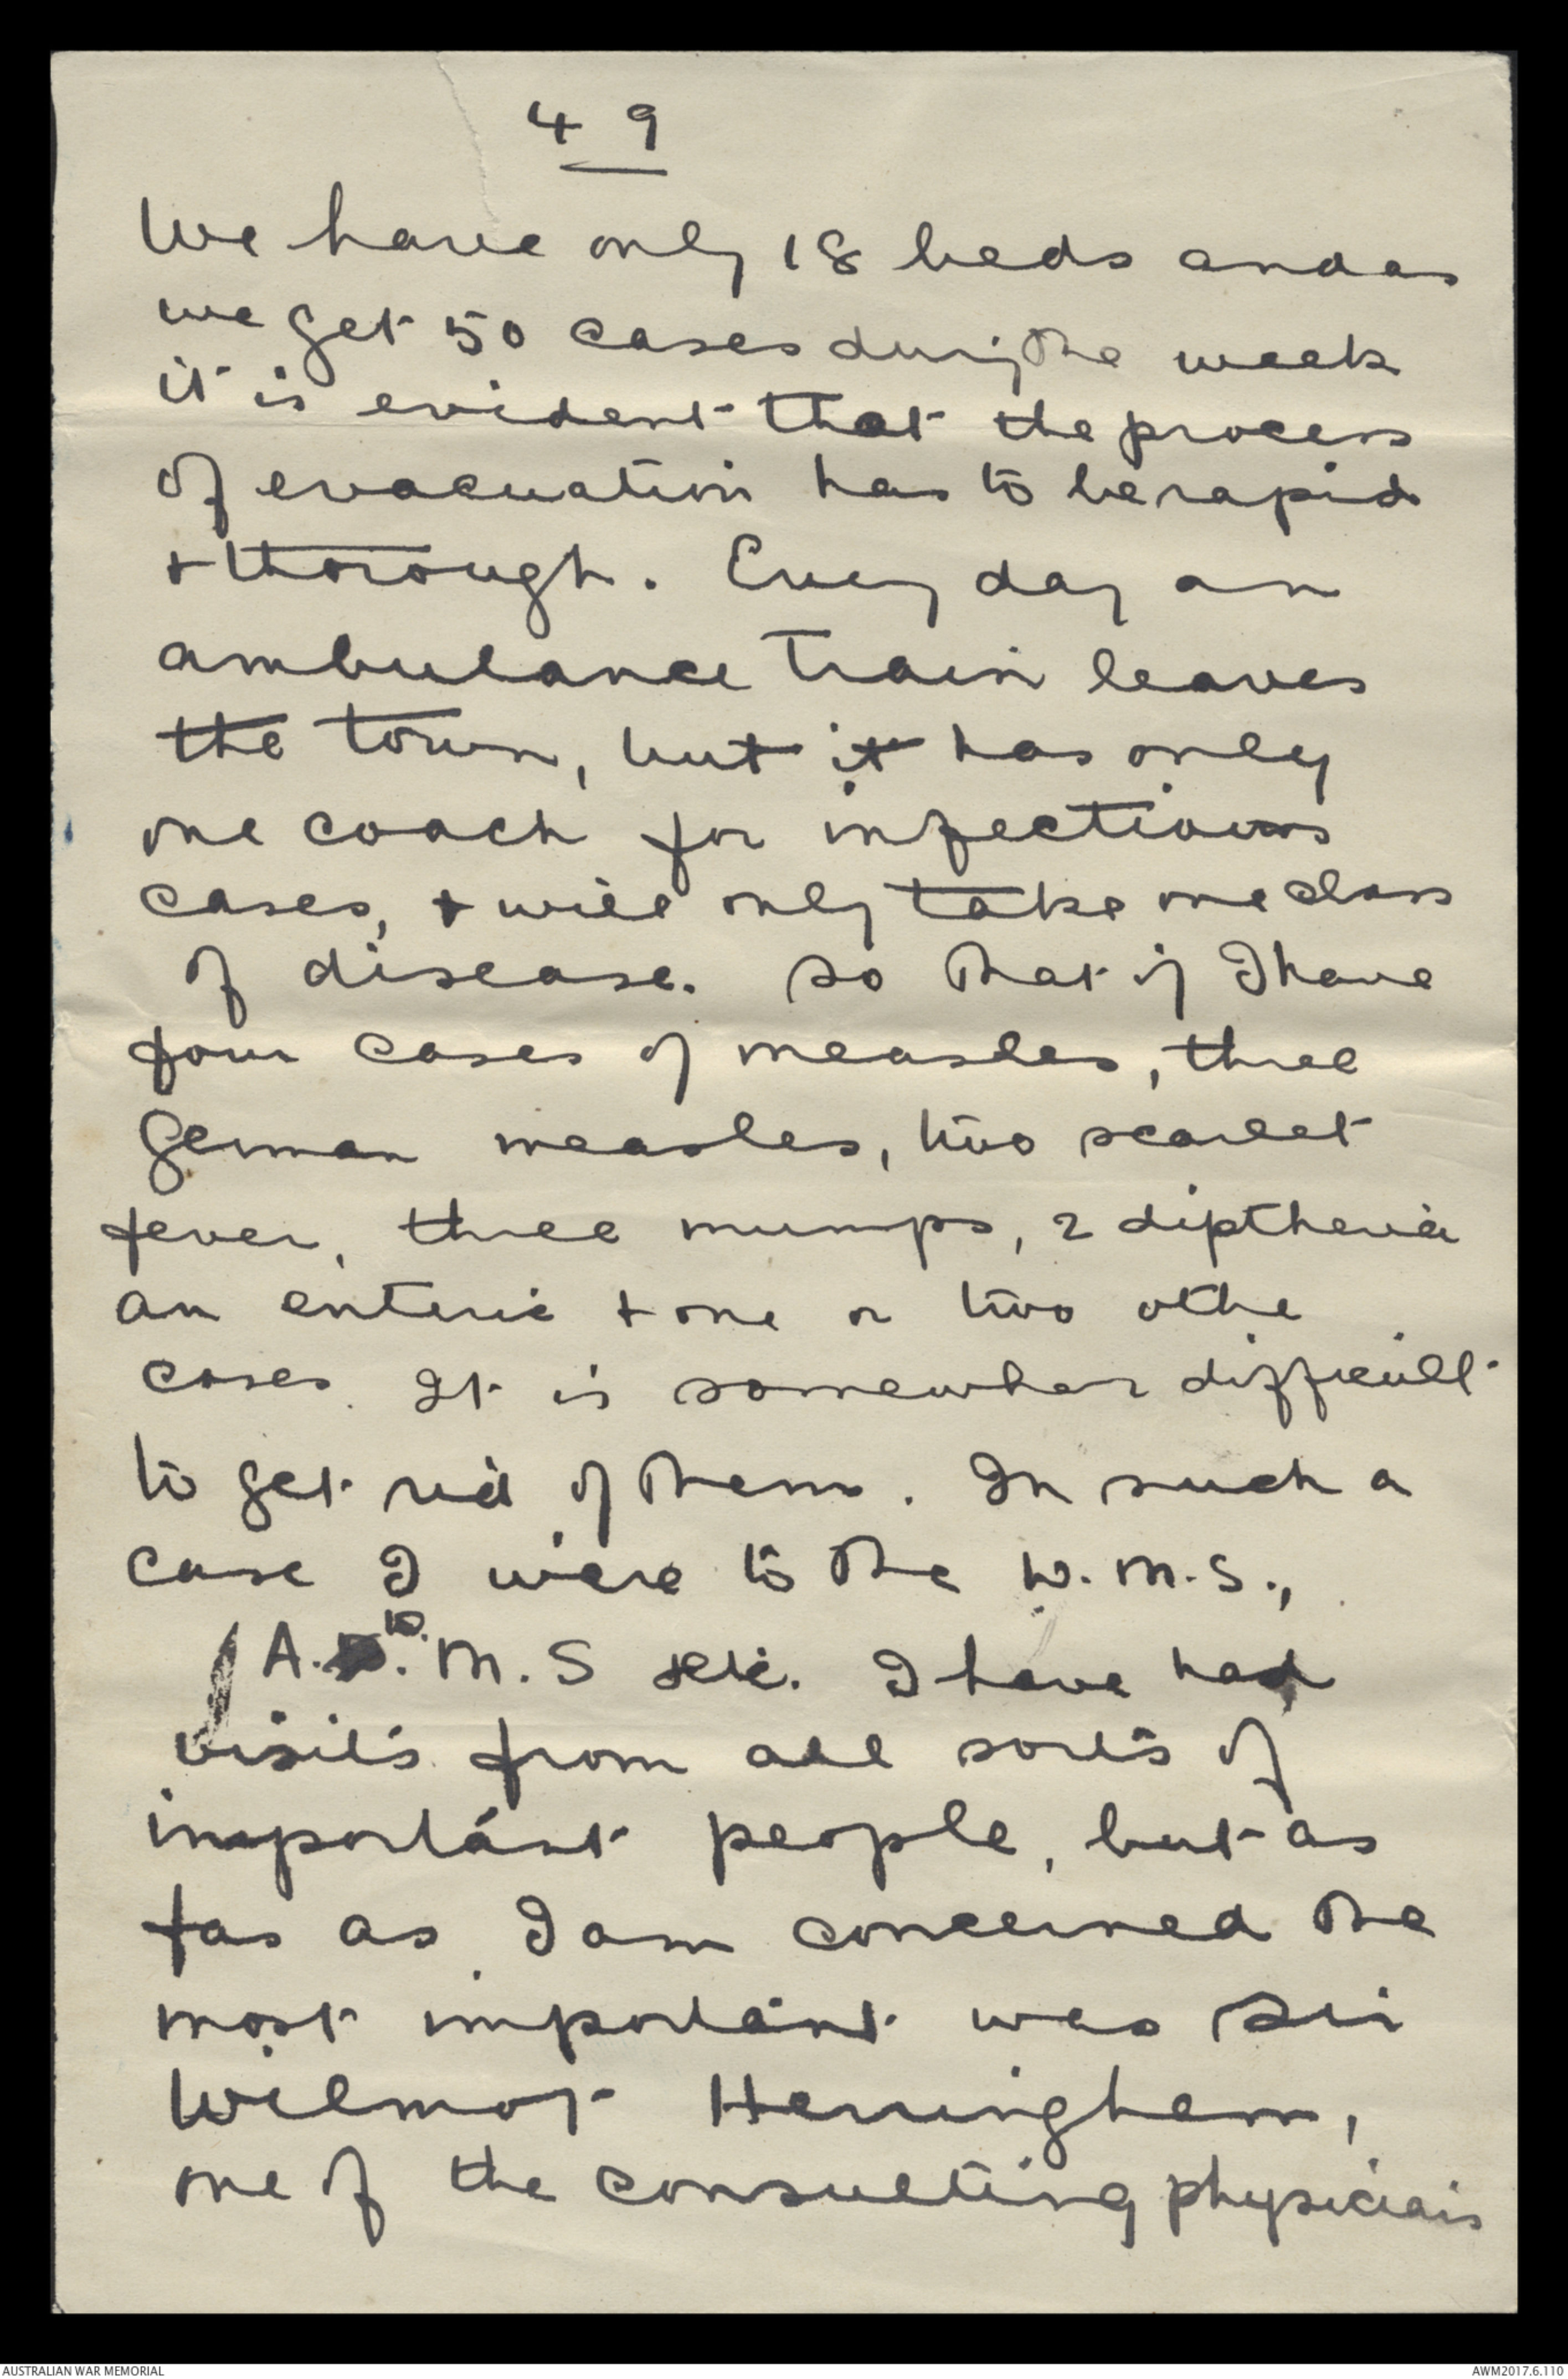 4 9
We have only 18 beds and as
we get 50 cases during the week
it is evident that the process
of evacuation has to be rapid
+ thorough. Every day an
ambulance train leaves
the town, but it has only
one coach for infectious
cases, + will only take one class
of disease. So that if I have
four cases of measles, three
German measles, two scarlet
fever, three mumps, 2 diptheria
an enteric + one or two othe
cases. It is somewhat difficult
to get rid of them. In such a
case I wire to the D.M.S.,
A.D.M.S etc. I have had
visits from all sorts of
important people, but as
far as I am concerned the
most important was Sir
Wilmot Herringham,
one of the consulting physicians
AUSTRALIAN WAR MEMORIAL
AWM2017.6.110